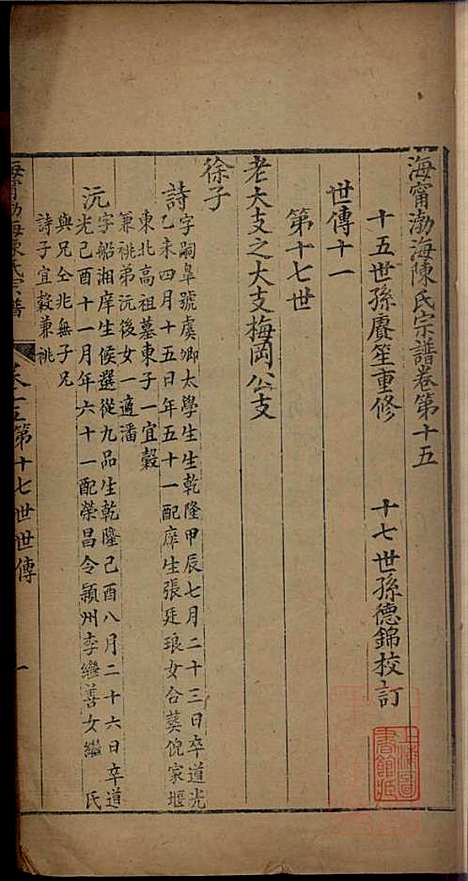 海甯渤海陳氏宗譜卷第十五
十五世孫賡笙重修
十七世孫德錦校訂
世傳十一
第十七世
老大支之大支梅岡公支
徐子
詩
字嗣阜號虞卿太學生生乾隆甲辰七月二十三日卒道光
乙未四月十五日年五十一配庠生張廷琅女合葬倪家堰
東北高祖墓東子一宜穀
兼祧弟沅後女一適潘
沅
字船湘庠生候選從九品生乾隆己酉八月二十六日卒道
光己酉十一月年六十一配榮昌令潁州李繼善女繼 氏
與兄仝兆無子兄
詩子宜穀兼祧
海甯渤海陳氏宗譜
卷十五第十七世世傳
一
上海圖
書館藏